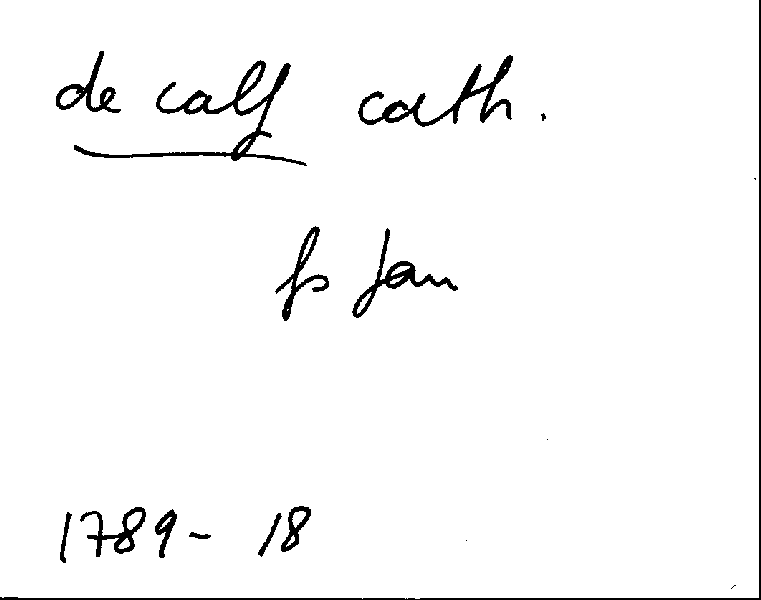 de calf cath.
fs Jan
1789 - 18